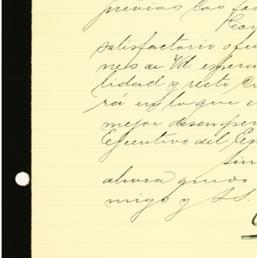 previas las for
satisfactorio o fu
nes de Vd. espera
lidad y recto cri
rá en lo que e
mejor desempeñ
Ejecutivo del Es
Sin
ahora quedo
migo y S.S.